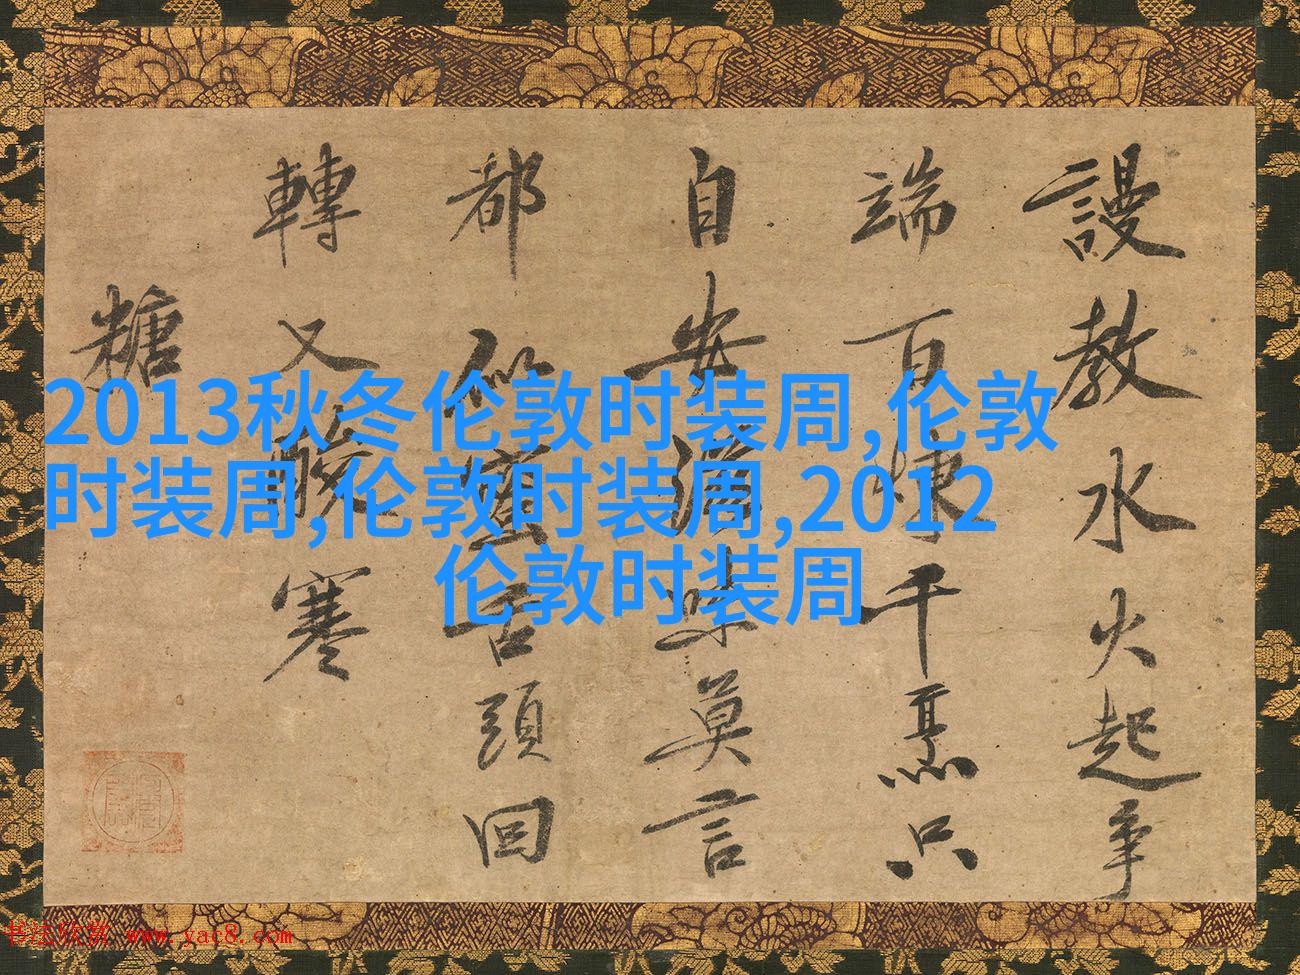 謾教水火起爭
端百煉千熏只
自安滋味莫言
都似蜜舌頭回
轉又酸寒
糖
2013秋冬伦敦时装周,伦敦
时装周,伦敦时装周,2012
伦敦时装周
书法欣赏 www.yac8.com